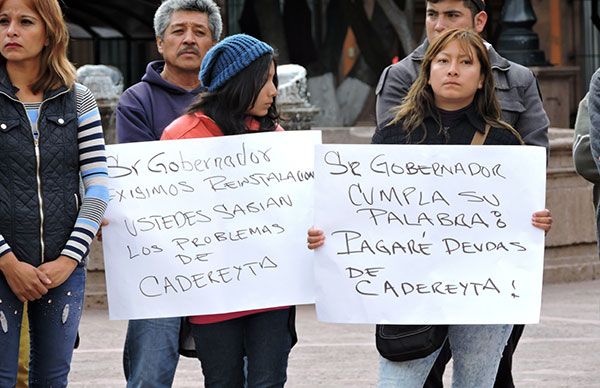 Sr Gobernador
EXIGIMOS REINSTALACION
USTEDES SABIAN
LOS PROBLEMAS
DE
CADEREYTA
SR GOBERNADOR
CUMPLA SU
PALABRA:
PAGARÉ DEUDAS
DE
CADEREYTA!